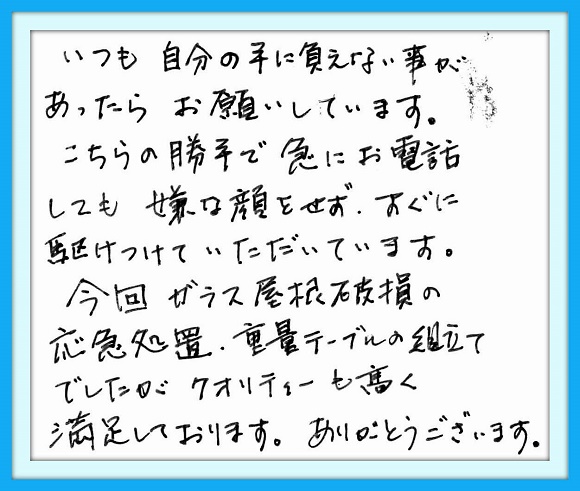 いつも 自分の手に負えない事が
あったら お願いしています。
こちらの勝手で 急にお電話
しても 嫌な顔をせず、すぐに
駆けつけていただいています。
今回 ガラス屋根破損の
応急処置、重量テーブルの組立て
でしたが クオリティーも高く
満足しております。ありがとうございます。